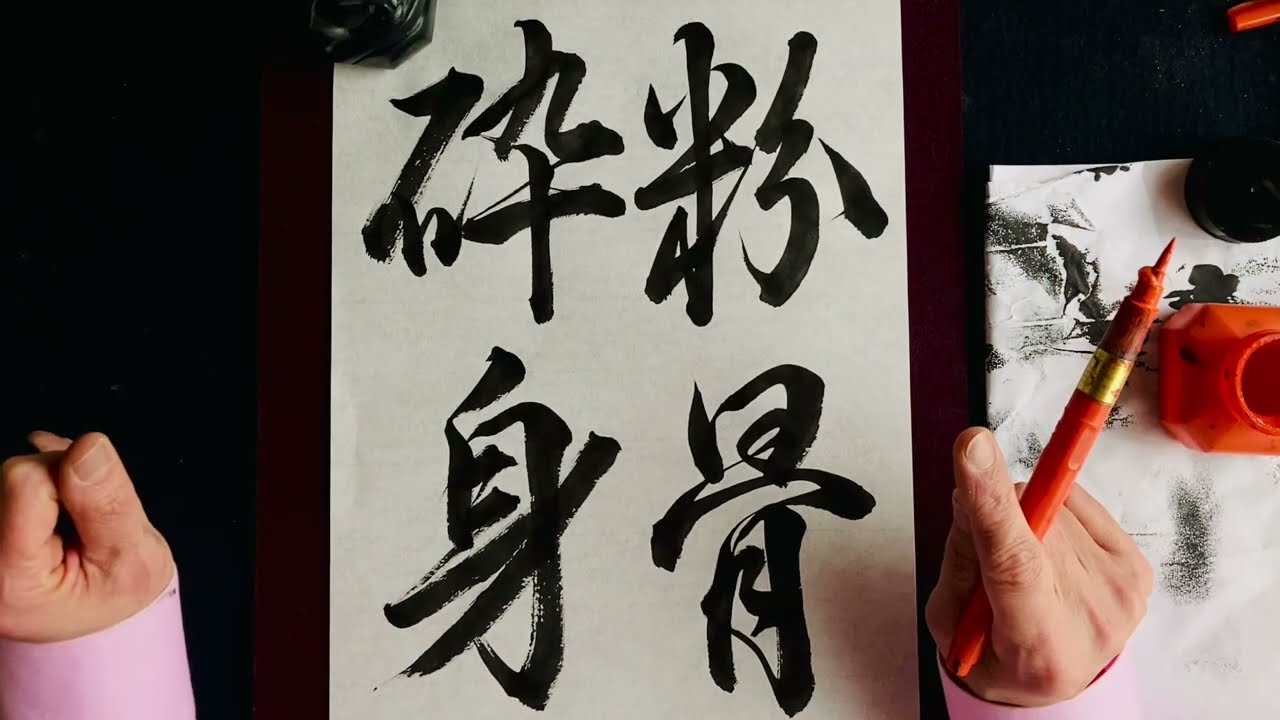 粉骨
砕身